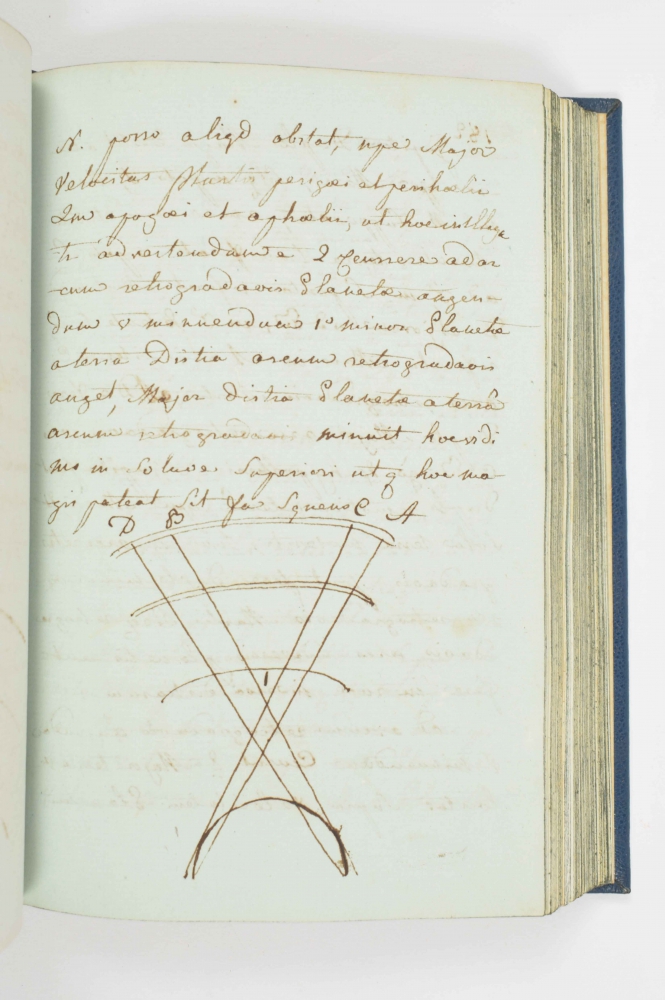 N. porro aliqd obstat, npe Major
Velocitas Plantis perigæi et perihælii
Qm apogæi et aphælii, ut hoc intelliga
tr advertendum e 2 Crrere ad ar
-cum retrogradaois Planetæ augen-
dum & minuendum 1º minor Planetæ
a terra Distia arcum retrogradaois
auget, Major distia Planetæ a terrâ
arcum retrogradaois minuit hoc vidi
mus in Soluoe Superiori ut q hoc ma-
gis pateat Sit fra Sequens
D B C A
1